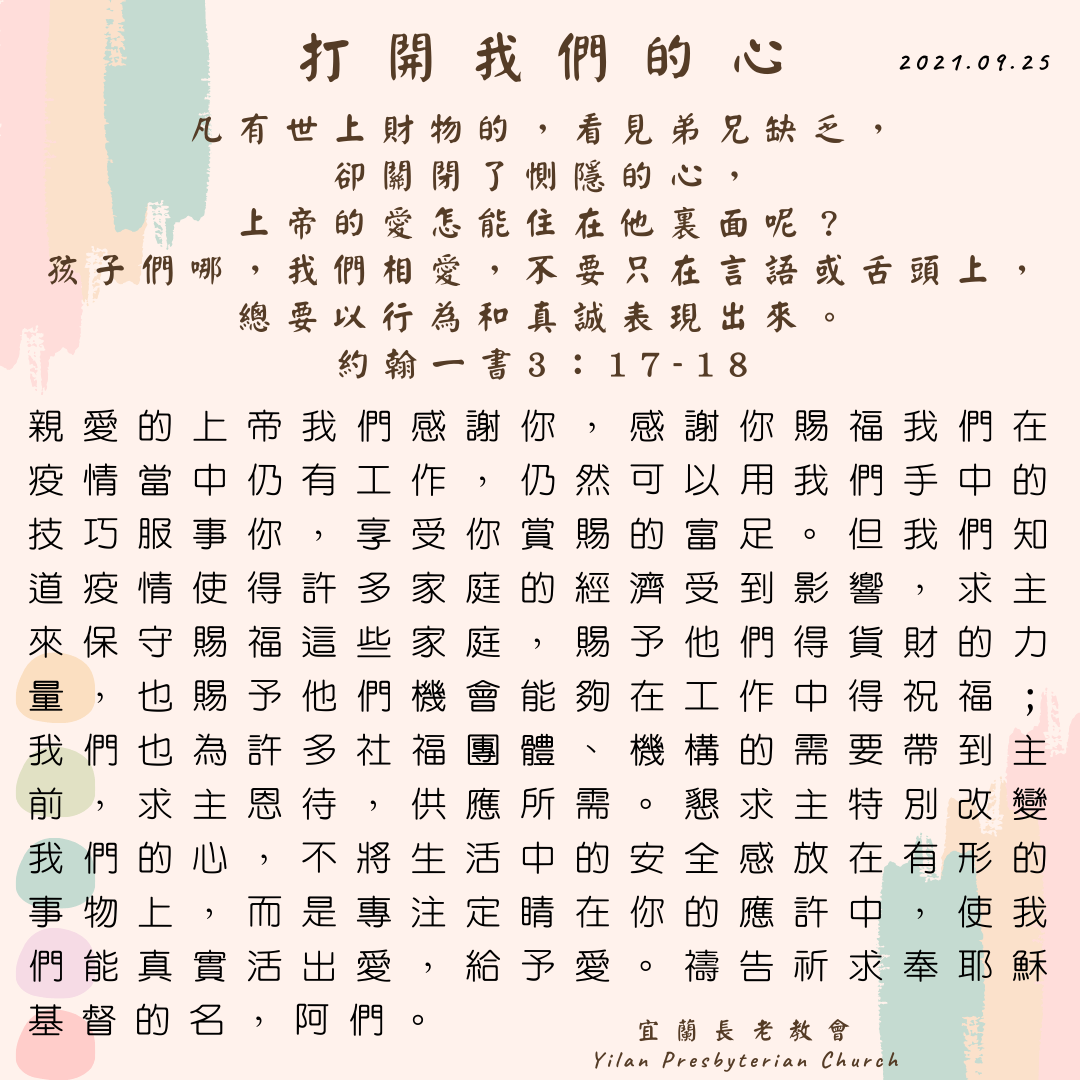 打開我們的心
2021.09.25
凡有世上財物的，看見弟兄缺乏，
卻關閉了惻隱的心，
上帝的愛怎能住在他裏面呢？
孩子們哪，我們相愛，不要只在言語或舌頭上，
總要以行為和真誠表現出來。
約翰一書3：17-18
親愛的上帝我們感謝你，感謝你賜福我們在
疫情當中仍有工作，仍然可以用我們手中的
技巧服事你，享受你賞賜的富足。但我們知
道疫情使得許多家庭的經濟受到影響，求主
來保守賜福這些家庭，賜予他們得貨財的力
量，也賜予他們機會能夠在工作中得祝福；
我們也為許多社福團體、機構的需要帶到主
前，求主恩待，供應所需。懇求主特別改變
我們的心，不將生活中的安全感放在有形的
事物上，而是專注定睛在你的應許中，使我
們能真實活出愛，給予愛。禱告祈求奉耶穌
基督的名，阿們。
宜蘭長老教會
Yilan Presbyterian Church